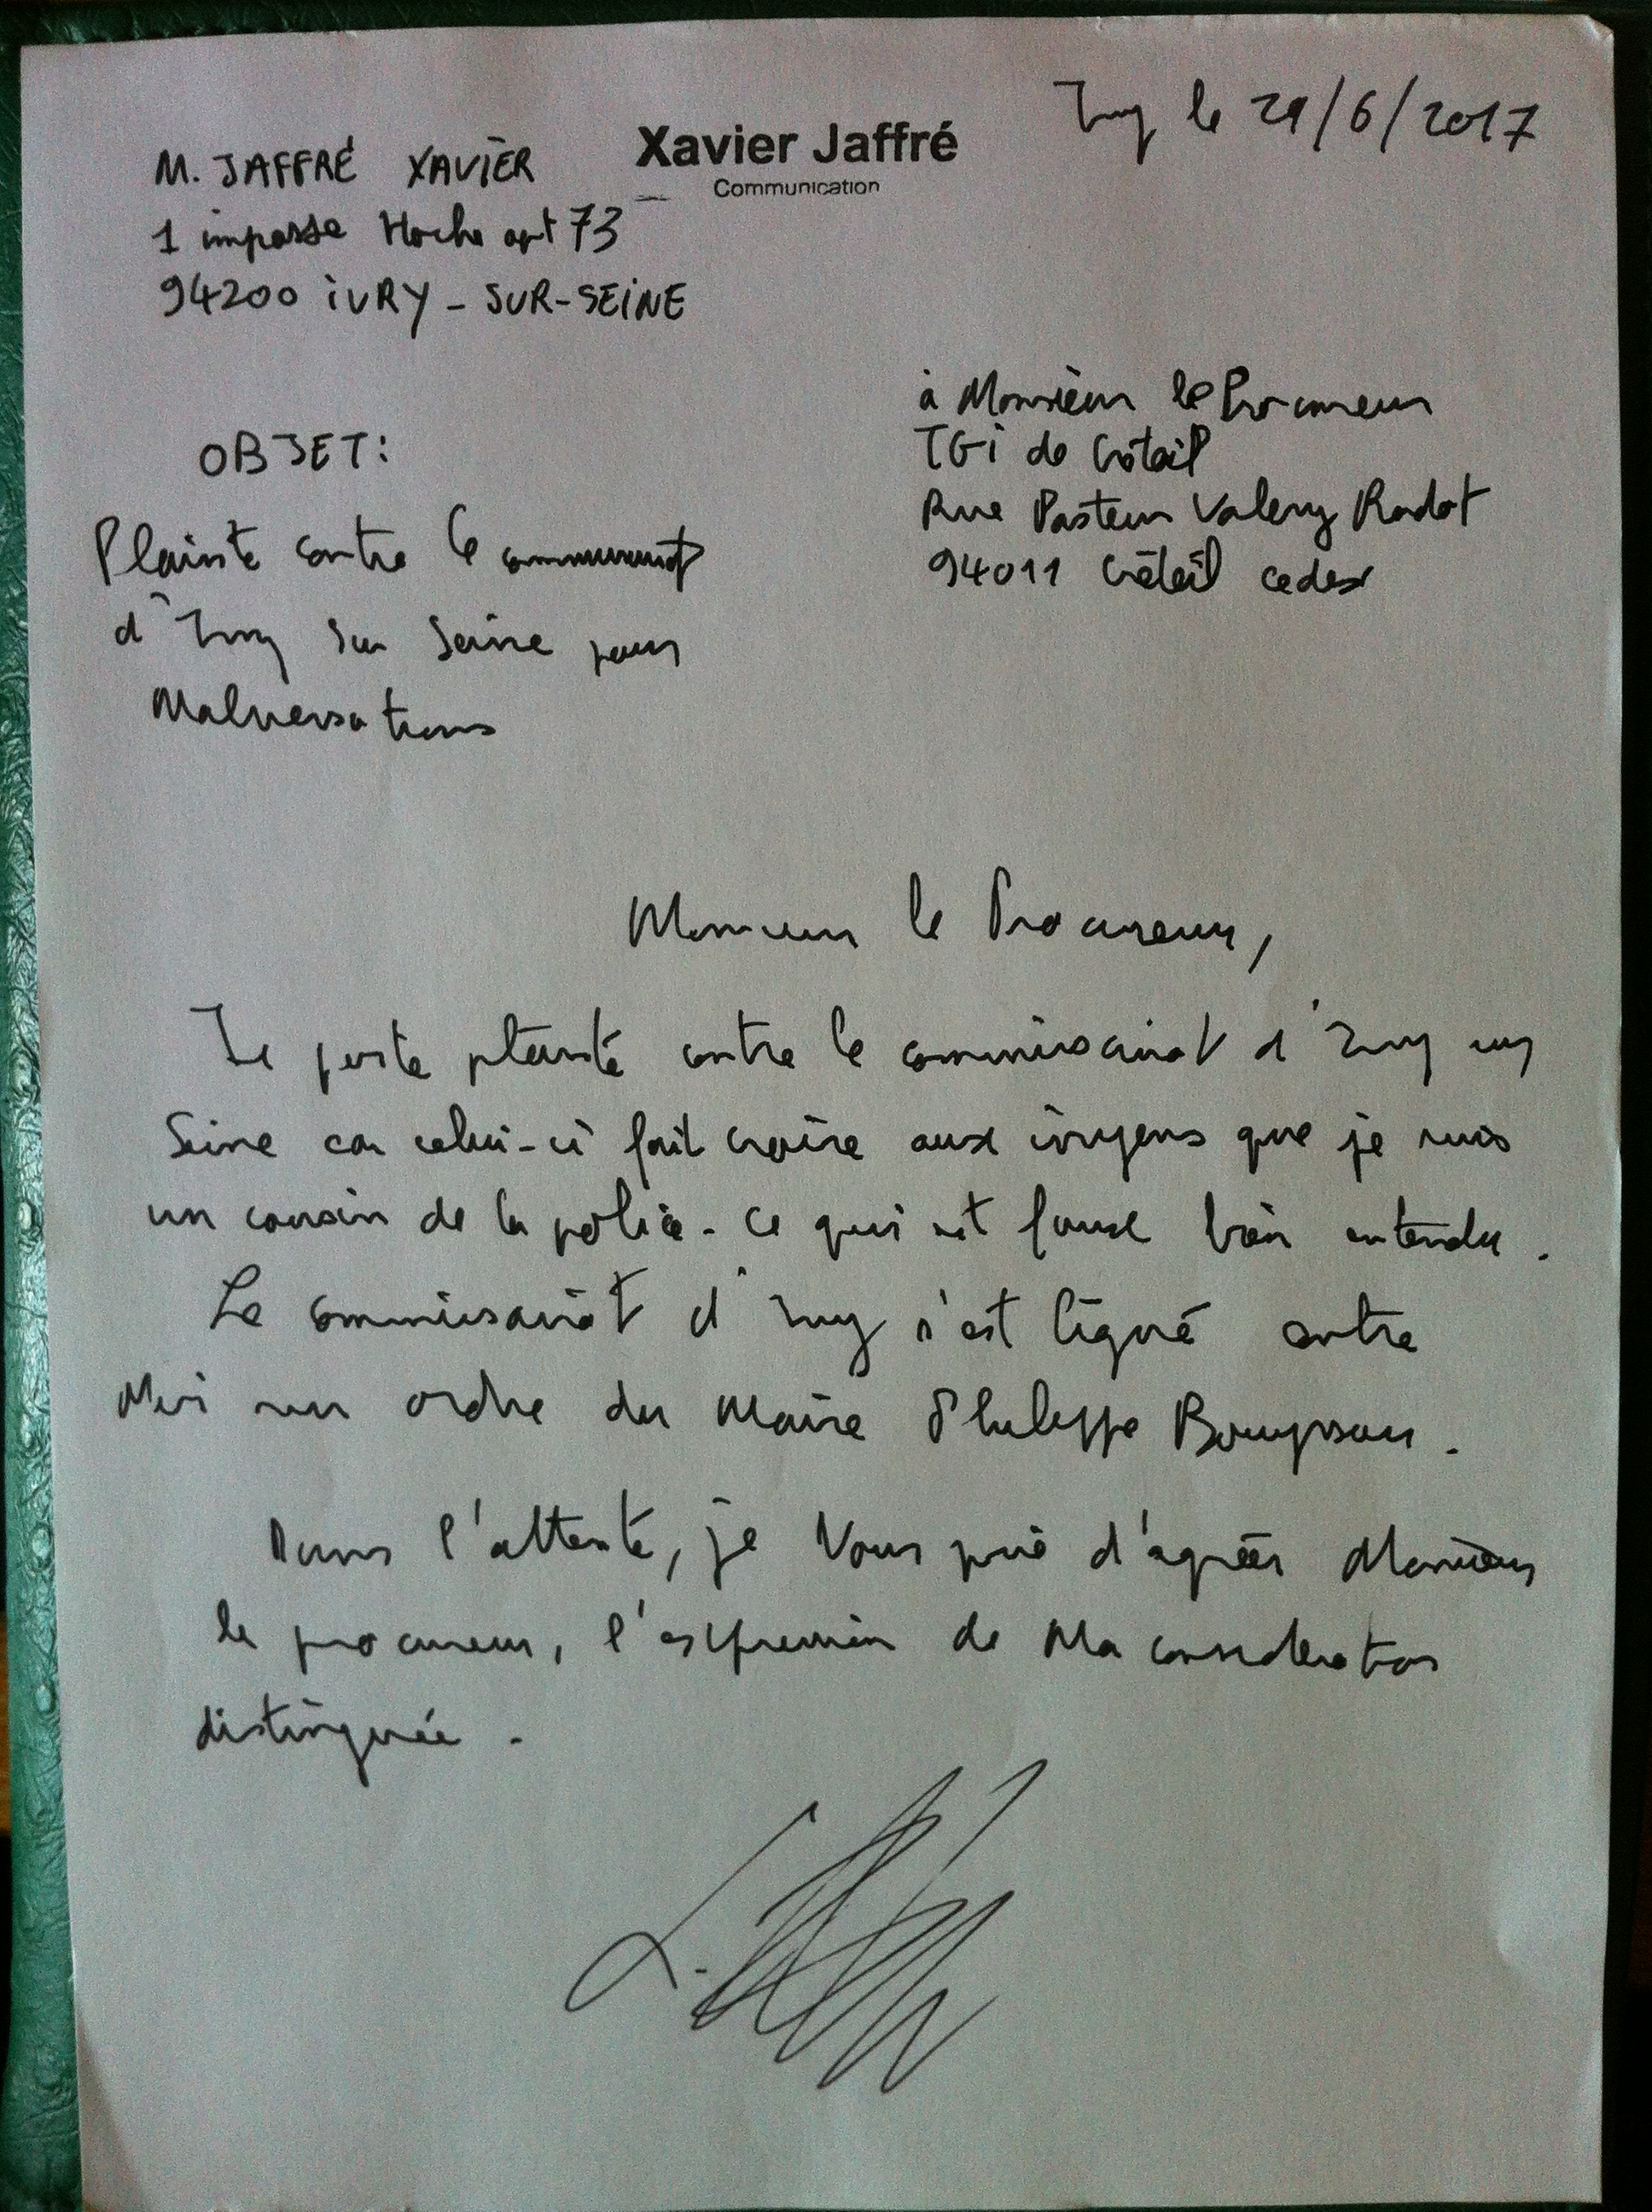 Ivry le 29/6/2017
Xavier Jaffré
Communication
M. JAFFRÉ XAVIER
1 impasse Hoche apt 73
94200 IVRY - SUR-SEINE
à Monsieur le Procureur
TGI de Créteil
Rue Pasteur Valery Radot
94011 Créteil cedex
OBJET:
Plainte contre le commissariat
d'Ivry sur Seine pour
Malversations
Monsieur le Procureur,
Je porte plainte contre le commissariat d'Ivry sur
Seine car celui-ci fait croire aux ivryens que je suis
un cousin de la police. Ce qui est faux bien entendu.
Le commissariat d'Ivry s'est ligué contre
Moi sur ordre du Maire Philippe Bouyssou.
Dans l'attente, je vous prie d'agréer Monsieur
le procureur, l'expression de Ma considération
distinguée.